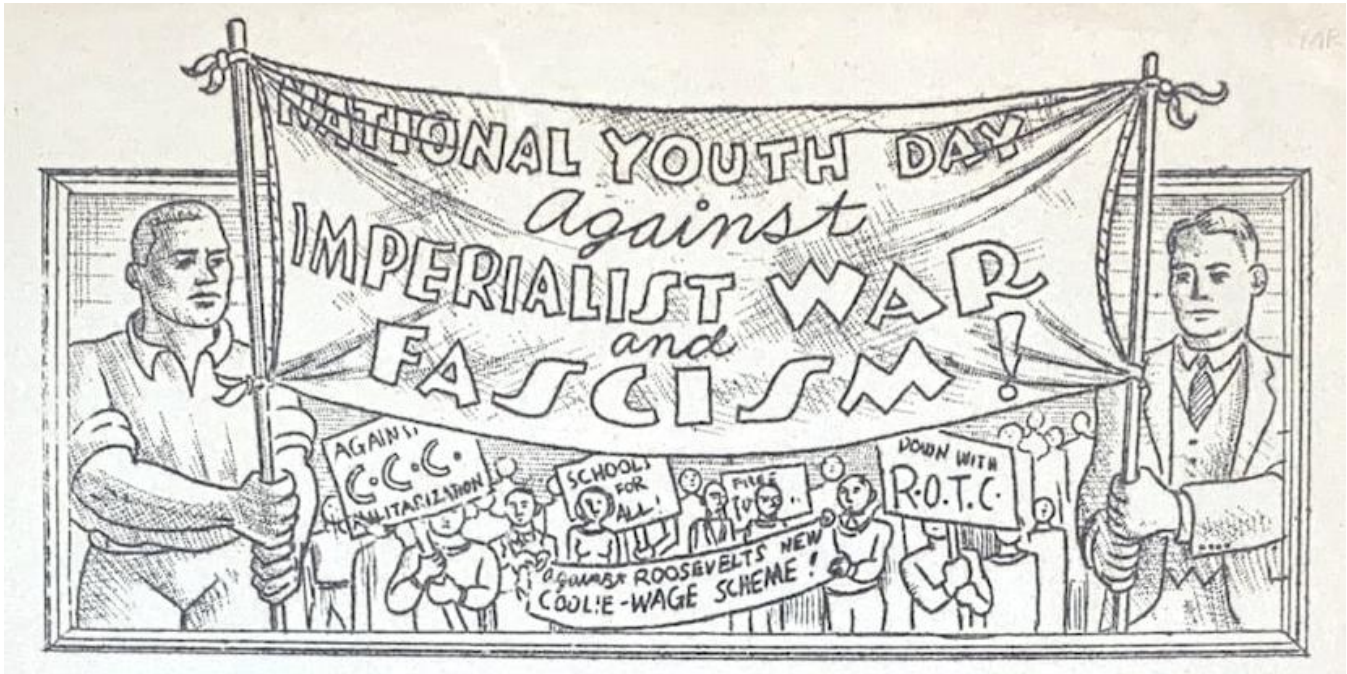 NATIONAL YOUTH DAY
against
IMPERIALIST WAR
and
FASCISM!
AGAINST
C.C.C.
MILITARIZATION
SCHOOLS
FOR
ALL!
FREE
DOWN WITH
R.O.T.C.
against ROOSEVELTS NEW
COOLIE-WAGE SCHEME!